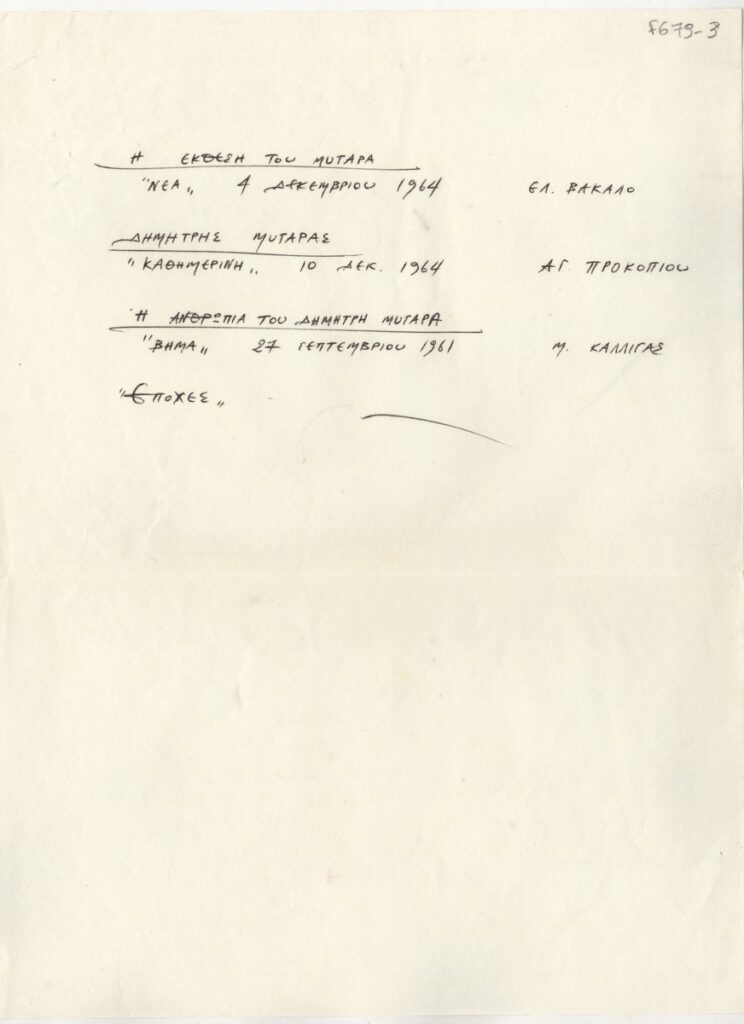 f679-3
Η ΕΚΘΕΣΗ ΤΟΥ ΜΥΤΑΡΑ
"ΝΕΑ„ 4 ΔΕΚΕΜΒΡΙΟΥ 1964 ΕΛ. ΒΑΚΑΛΟ
ΔΗΜΗΤΡΗΣ ΜΥΤΑΡΑΣ
"ΚΑΘΗΜΕΡΙΝΗ„ 10 ΔΕΚ. 1964 ΑΓ. ΠΡΟΚΟΠΙΟΥ
Η ΑΝΘΡΩΠΙΑ ΤΟΥ ΔΗΜΗΤΡΗ ΜΥΤΑΡΑ
"ΒΗΜΑ„ 27 ΣΕΠΤΕΜΒΡΙΟΥ 1961 Μ. ΚΑΛΛΙΓΑΣ
"ΕΠΟΧΕΣ„